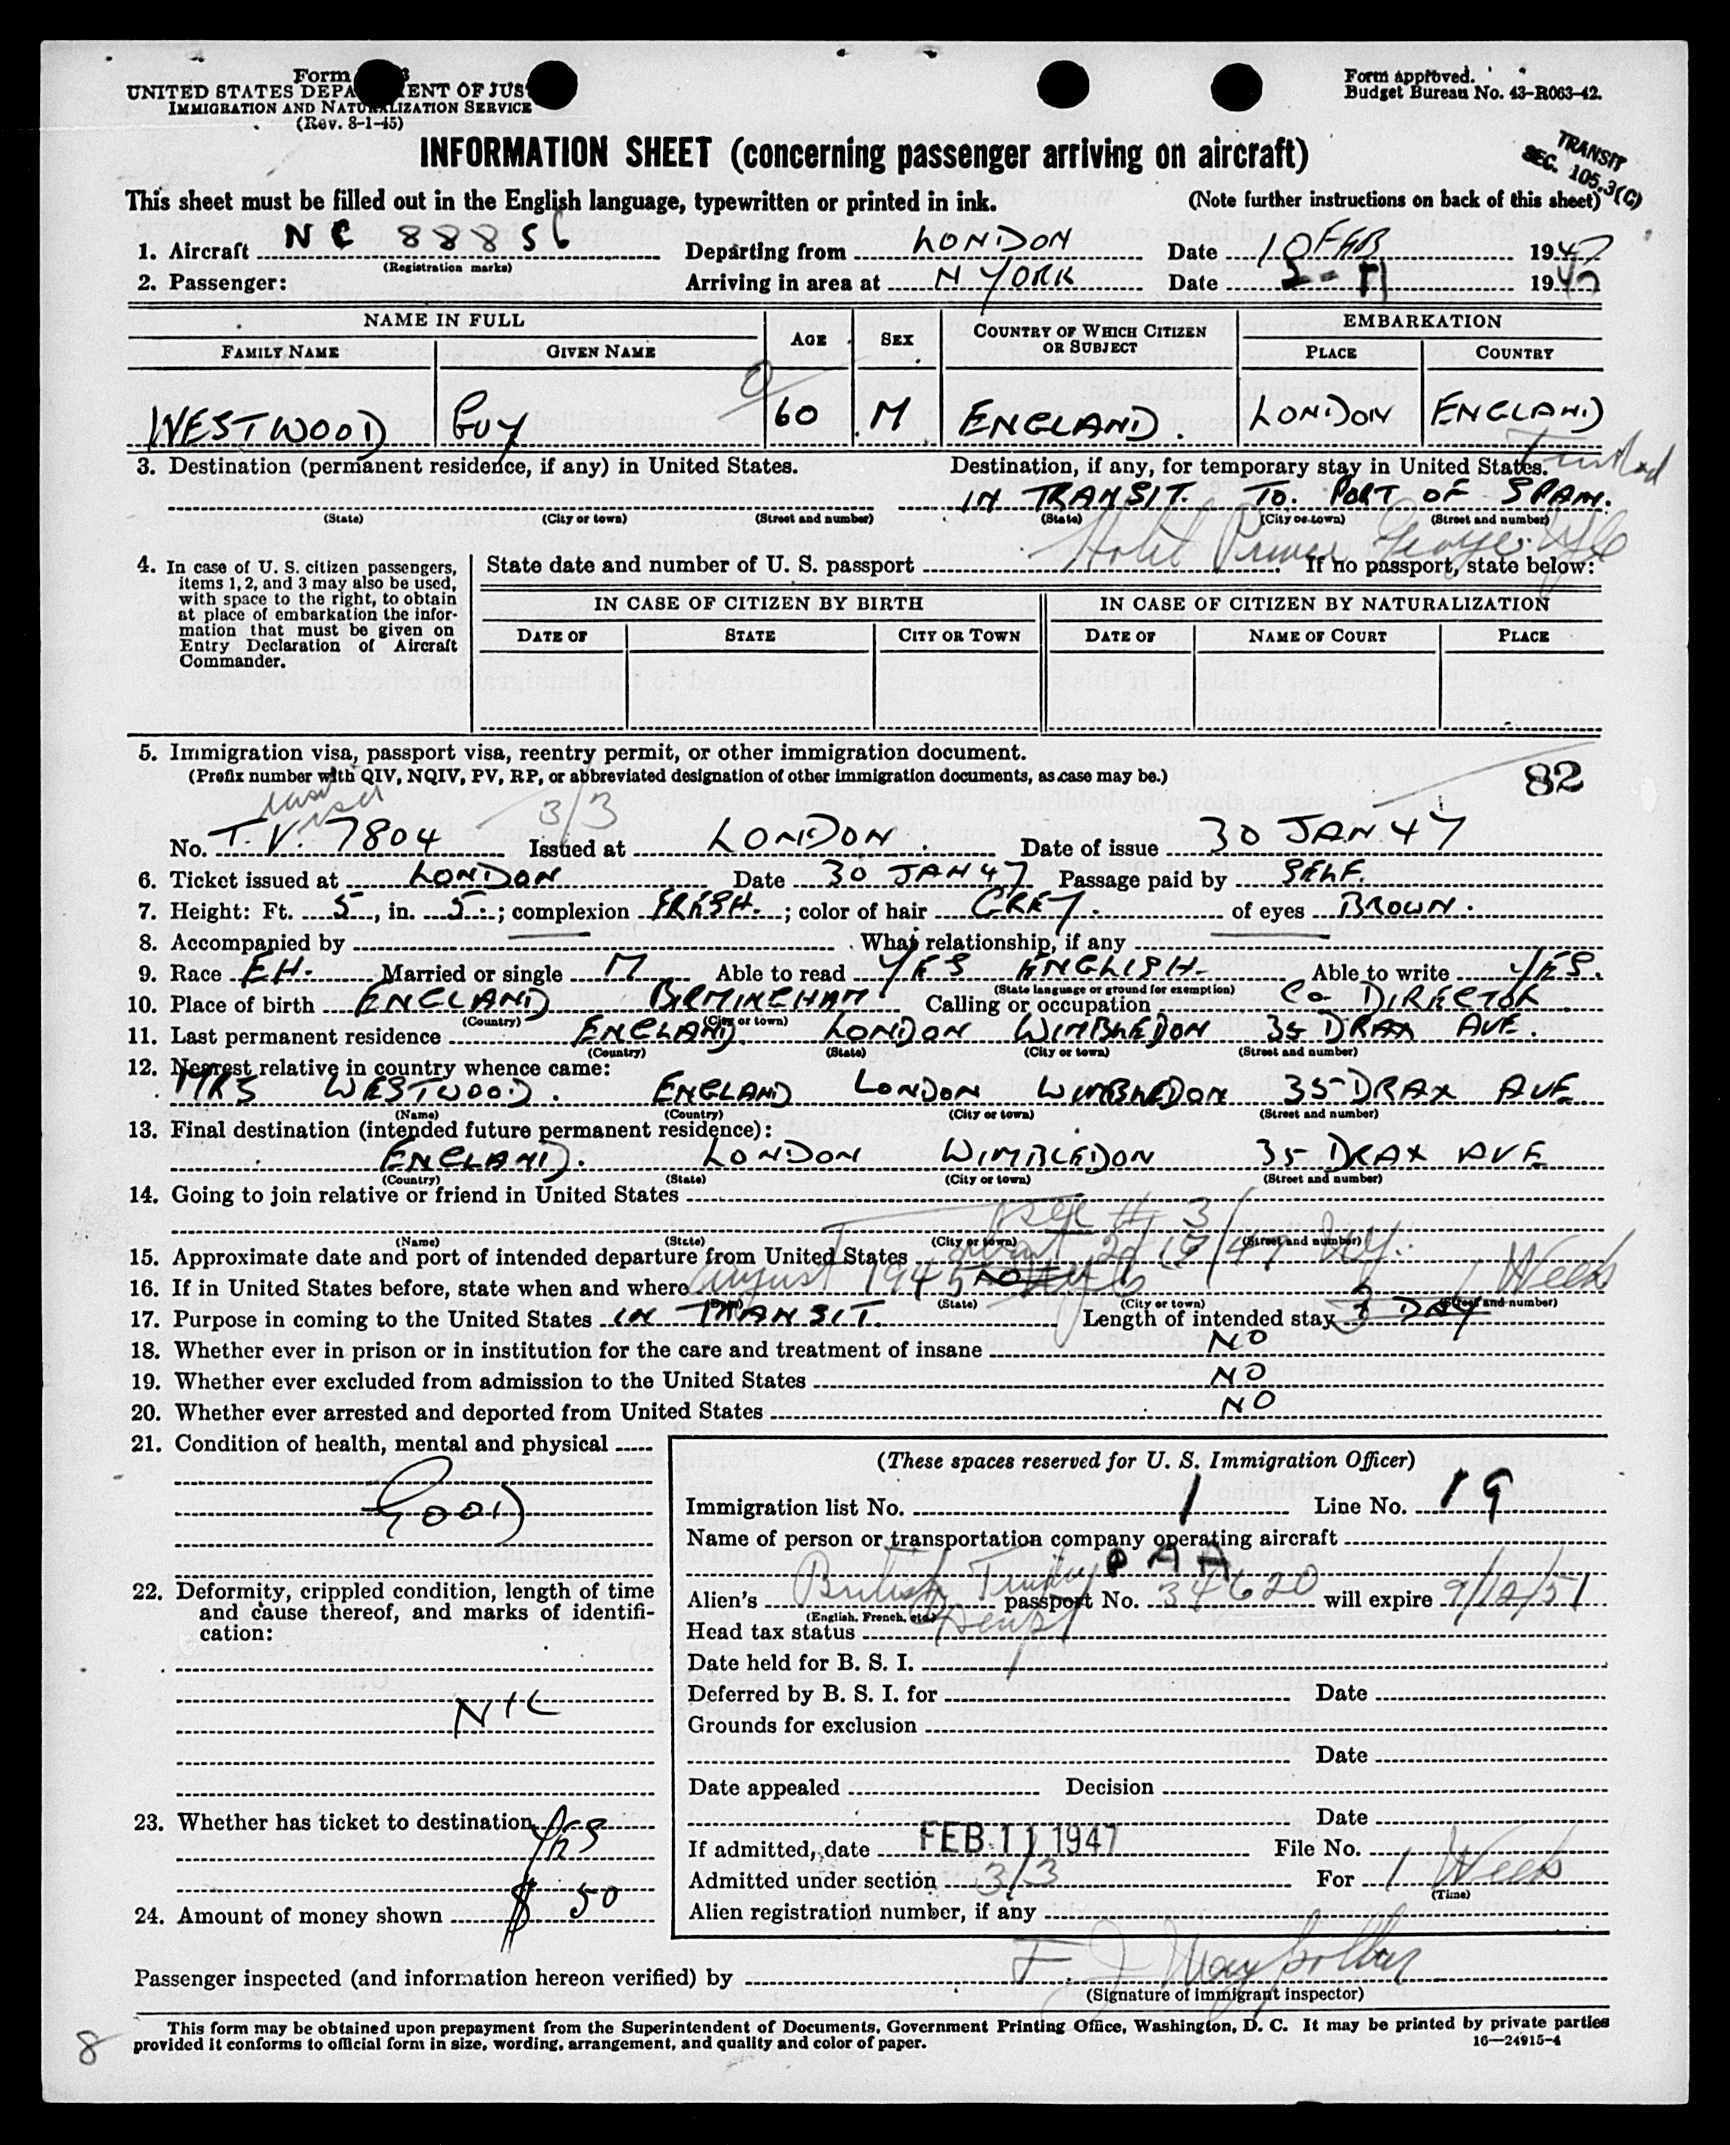 Form
UNITED STATES DEPARTMENT OF JUS
IMMIGRATION AND NATURALIZATION SERVICE
(Rev. 8-1-45)
Form approved.
Budget Bureau No. 43-R063-42.
INFORMATION SHEET (concerning passenger arriving on aircraft)
TRANSIT
SEC. 105.3(C)
This sheet must be filled out in the English language, typewritten or printed in ink. (Note further instructions on back of this sheet)
1. Aircraft NC 88856 Departing from LONDON Date 10 FEB 1947
(Registration marks)
2. Passenger: Arriving in area at N YORK Date 2-11 1947
NAME IN FULL AGE SEX COUNTRY OF WHICH CITIZEN OR SUBJECT EMBARKATION
FAMILY NAME GIVEN NAME PLACE COUNTRY
WESTWOOD GUY 60 M ENGLAND. LONDON ENGLAND
3. Destination (permanent residence, if any) in United States. Destination, if any, for temporary stay in United States. Trinidad
IN TRANSIT. TO. PORT OF SPAIN.
(State) (City or town) (Street and number) (State) (City or town) (Street and number)
Hotel Prince George NYC
4. In case of U. S. citizen passengers, items 1, 2, and 3 may also be used, with space to the right, to obtain at place of embarkation the information that must be given on Entry Declaration of Aircraft Commander.
State date and number of U. S. passport If no passport, state below:
IN CASE OF CITIZEN BY BIRTH IN CASE OF CITIZEN BY NATURALIZATION
DATE OF STATE CITY OR TOWN DATE OF NAME OF COURT PLACE
5. Immigration visa, passport visa, reentry permit, or other immigration document.
(Prefix number with QIV, NQIV, PV, RP, or abbreviated designation of other immigration documents, as case may be.)
82
3/3
No. T.V. 7804 Issued at LONDON. Date of issue 30 JAN 47
6. Ticket issued at LONDON Date 30 JAN 47 Passage paid by SELF.
7. Height: Ft. 5, in. 5; complexion FRESH.; color of hair GREY. of eyes BROWN.
8. Accompanied by What relationship, if any
9. Race EH. Married or single M Able to read YES ENGLISH. Able to write YES.
(State language or ground for exemption)
10. Place of birth ENGLAND BIRMINGHAM Calling or occupation Co DIRECTOR
(Country) (City or town)
11. Last permanent residence ENGLAND LONDON WIMBLEDON 35 DRAX AVE.
(Country) (State) (City or town) (Street and number)
12. Nearest relative in country whence came:
MRS WESTWOOD. ENGLAND LONDON WIMBLEDON 35 DRAX AVE
(Name) (Country) (City or town) (Street and number)
13. Final destination (intended future permanent residence):
ENGLAND. LONDON WIMBLEDON 35 DRAX AVE
(Country) (State) (City or town) (Street and number)
14. Going to join relative or friend in United States
(Name) (State) (City or town) (Street and number)
15. Approximate date and port of intended departure from United States
16. If in United States before, state when and where August 1945 NO NYC
(State) (City or town) (Street and number)
1 Week
17. Purpose in coming to the United States IN TRANSIT. Length of intended stay 3 DAY
18. Whether ever in prison or in institution for the care and treatment of insane NO
19. Whether ever excluded from admission to the United States NO
20. Whether ever arrested and deported from United States NO
21. Condition of health, mental and physical
GOOD
22. Deformity, crippled condition, length of time and cause thereof, and marks of identification:
NIL
23. Whether has ticket to destination YES
24. Amount of money shown $ 50
(These spaces reserved for U. S. Immigration Officer)
Immigration list No. 1 Line No. 19
Name of person or transportation company operating aircraft
PAA
Alien's British passport No. 34620 will expire 9/12/51
(English, French, etc.)
Head tax status
Date held for B. S. I.
Deferred by B. S. I. for Date
Grounds for exclusion
Date
Date appealed Decision
Date
If admitted, date FEB 11 1947 File No.
Admitted under section 3/3 For 1 Week
(Time)
Alien registration number, if any
Passenger inspected (and information hereon verified) by
(Signature of immigrant inspector)
This form may be obtained upon prepayment from the Superintendent of Documents, Government Printing Office, Washington, D. C. It may be printed by private parties
provided it conforms to official form in size, wording, arrangement, and quality and color of paper. 16—24915-4
8